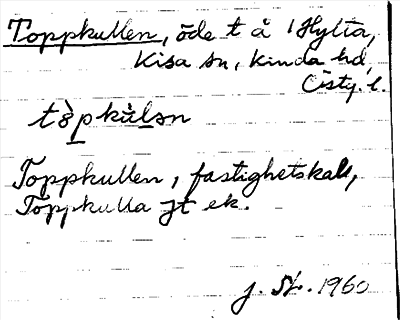 Toppkullen, öde t å 1 Hylta,
Kisa sn, Kinda hd,
Östg. l.
tòpkùlən
Toppkullen, fastighetskall,
Toppkulla jt ek.
J. Sv. 1960